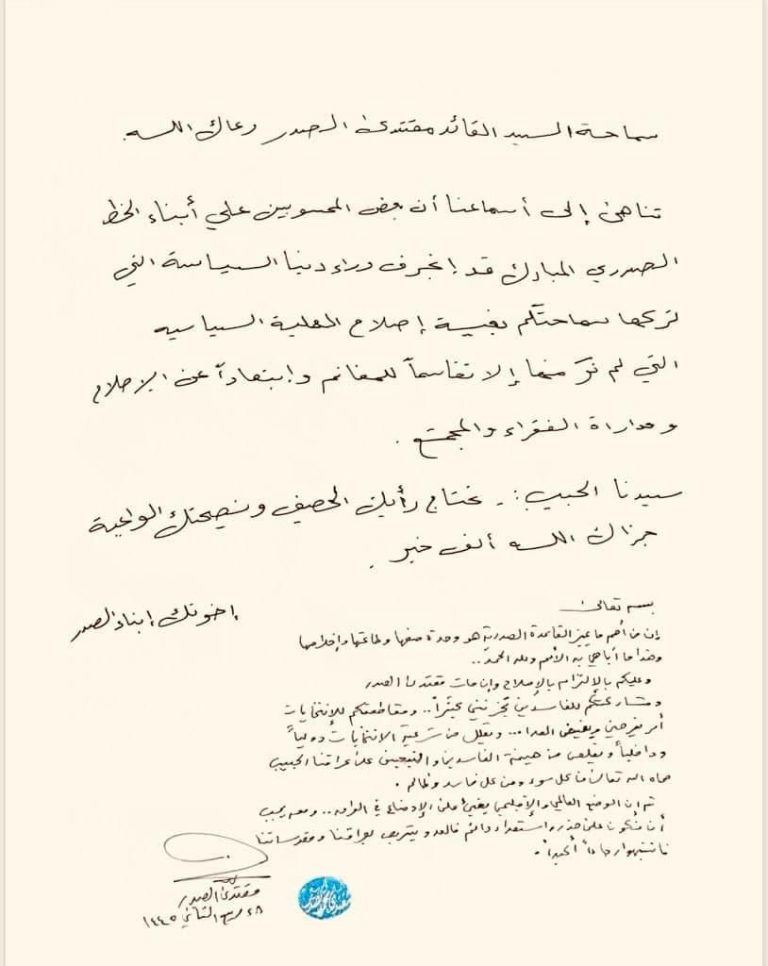 سماحة السيد القائد مقتدى الصدر رعاك الله.
تناهى إلى أسماعنا أن بعض المحسوبين على أبناء الخط
الصدري المبارك قد إنجرف وراء دنيا السياسة التي
تركتها سماحتكم بغية إصلاح العملية السياسيه
التي لم نرَ منها إلا تقاسماً للمغانم وإبتعاداً عن الإصلاح
ومداراة الفقراء والمجتمع.
سيدنا الحبيب:. نحتاج رأيك الحصيف ونصيحتك الواعية
جزاك الله ألف خير.
إخوتك إبناء الصدر
بسمه تعالى
إن من أهم ما يميز القاعدة الصدرية هو وحدة صفها وطاعتها وإخلاصها
وهذا ما أباهي به الأمم ولله الحمد..
وعليكم بالإلتزام بالإصلاح وإن مات مقتدى الصدر
ومشاركتكم للفاسدين تحزنني كثيراً.. ومقاطعتكم للإنتخابات
أمر يفرحني ويغيض العدا... ويقلل من شرعية الانتخابات دولياً
وداخلياً ويقلص من هيمنة الفاسدين والتبعيين على عراقنا الحبيب
حماه الله تعالى من كل سوء ومن كل فاسد وظالم.
ثم إن الوضع العالمي والإقليمي يغني على الإوضاع في العراق.. ومعه يجب
أن نكون على حذر وإستعداد دائم فالعدو يتربص بعراقنا ومقدساتنا
فانتبهوا رجاءاً أكيداً.
مقتدى الصدر
٢٨ ربيع الثاني ١٤٤٥